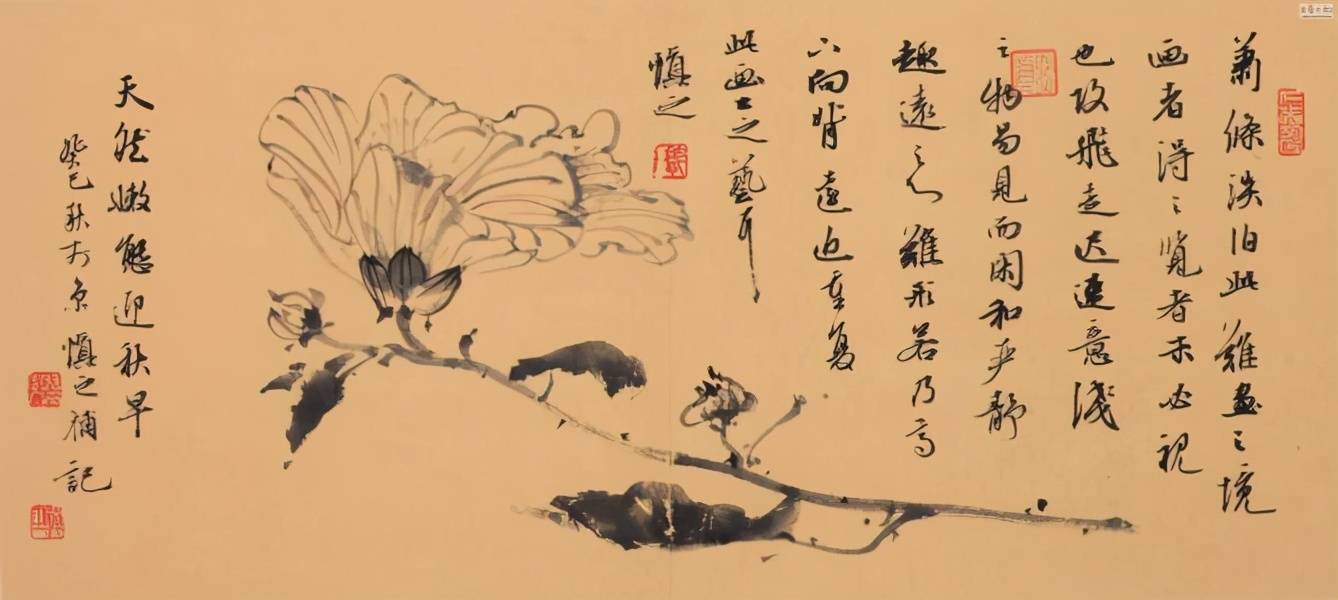 蕭條淡泊此難畫之境
画者得之覽者未必視
也故飛走迟速意淺
之物易見而闲和严静
趣遠之心難形若乃高
下向背遠近重复
此画士之藝耳
慎之
天然嫩態迎秋早
癸巳秋于京慎之補記